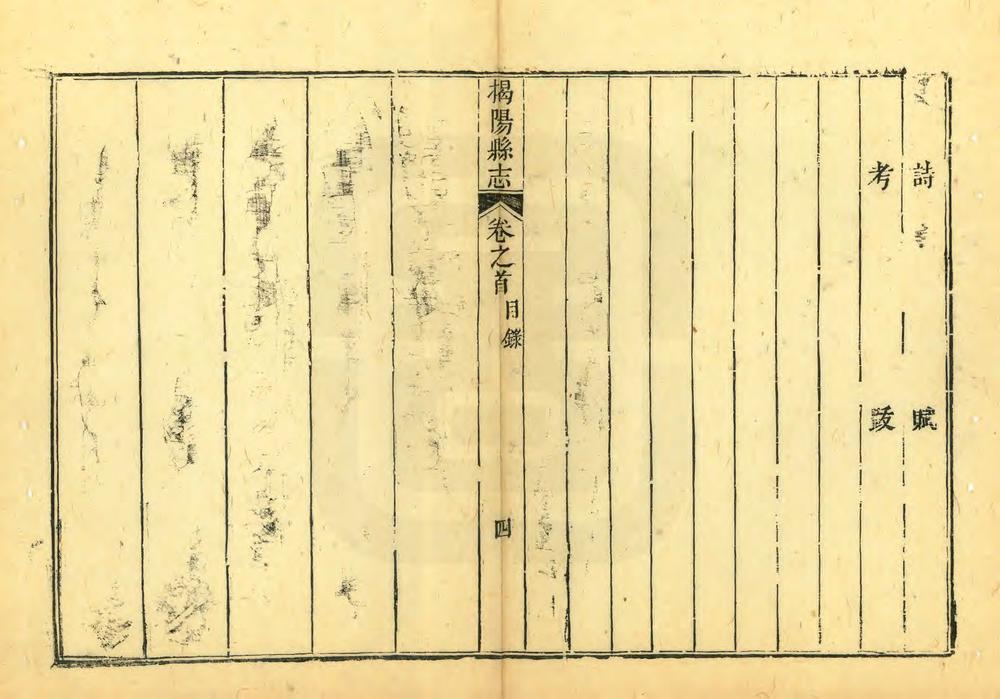 詩 賦
考 跋
揭陽縣志 卷之首 目錄 四